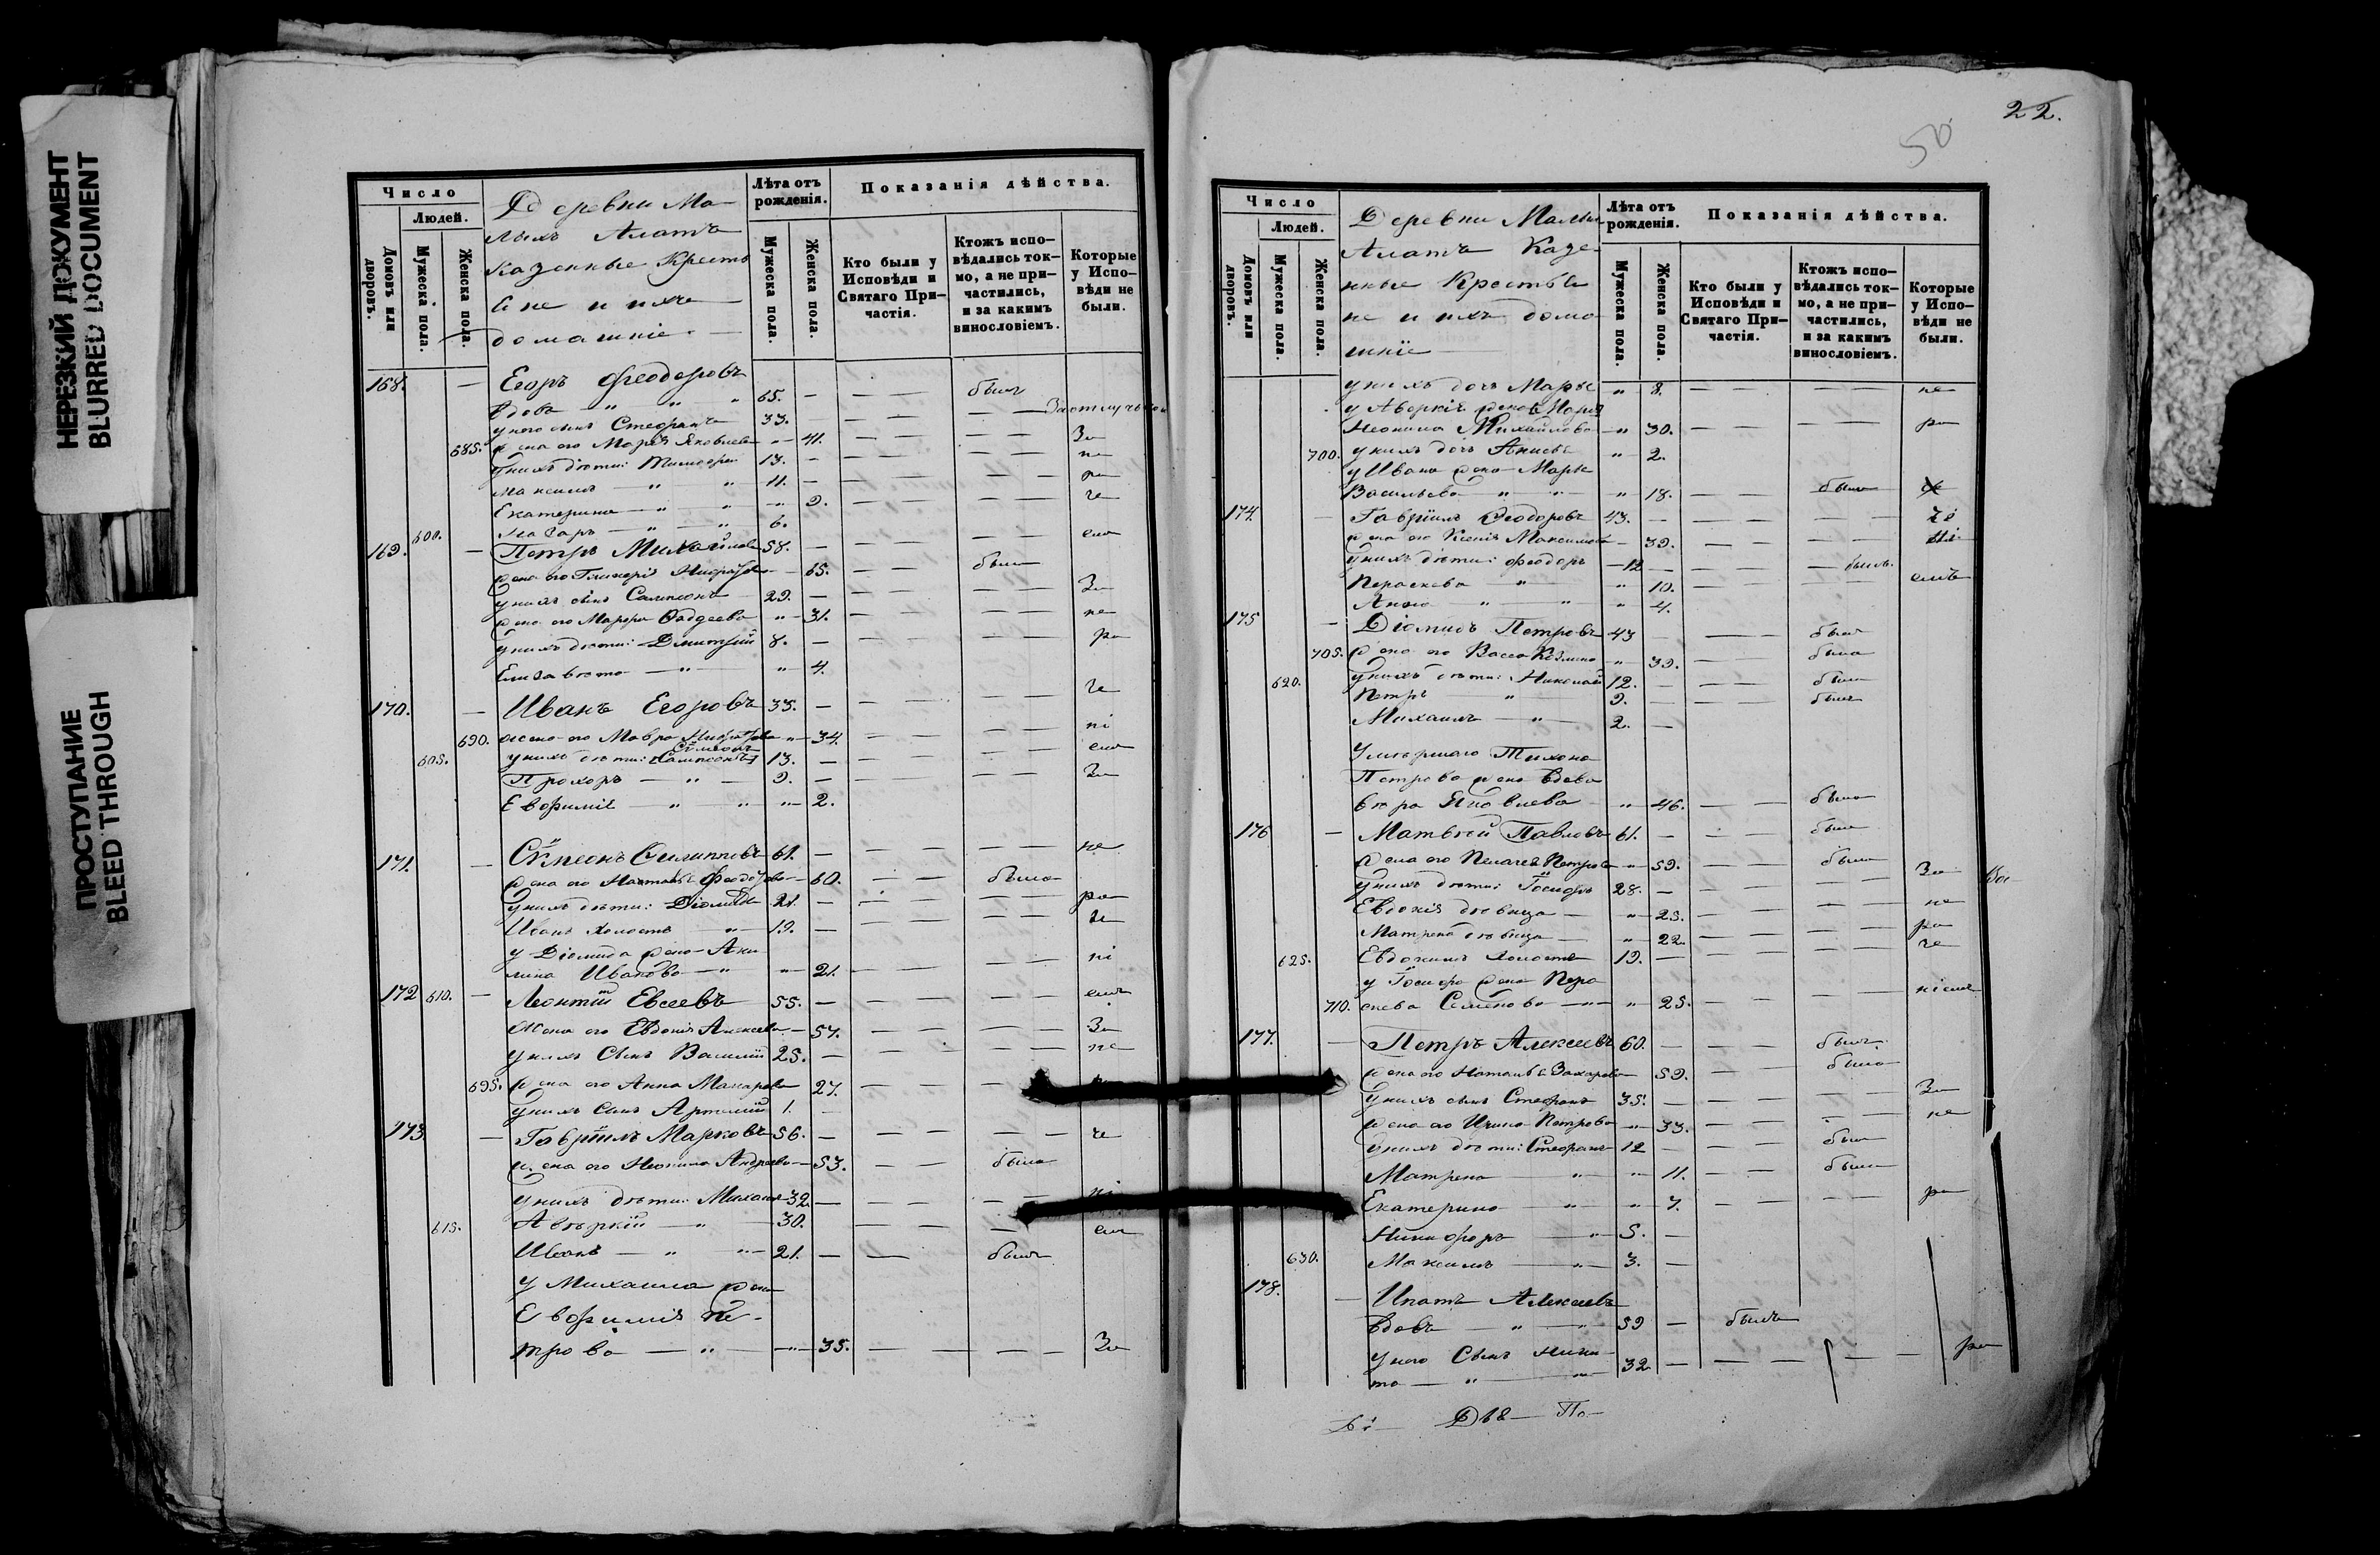 НЕРЕЗКИЙ ДОКУМЕНТ
BLURRED DOCUMENT
ПРОСТУПАНИЕ
BLEED THROUGH
Число
Людей.
Домовъ или дворовъ.
Мужеска пола.
Женска пола.
Деревни Ма-
лыхъ Алатъ
казенные Кресть
яне и ихъ
домашніе
Лѣта отъ рожденія.
Мужеска пола.
Женска пола.
Показанія дѣйства.
Кто были у Исповѣди и Святаго При-частія.
Ктожъ испо-вѣдались ток-мо, а не при-частились, и за какимъ винословіемъ.
Которые у Испо-вѣди не были.
168. — Егоръ Феодоровъ
вдовъ 65. — былъ
у него сынъ Стефанъ 33.
685. жена его Марѳа Яковлева 41. За
у нихъ дѣти: Тимофей 13. — не
Максимъ 11. — ра
Екатерина 9. че
600. 6.
169. — Петръ Михайловъ 58. —
жена его Гликерія 65. была
у нихъ сынъ Сампсонъ 29. — За
жена его Марфа Фадеева 31. не
у нихъ дѣти: Димитрій 8. — ра
Елизавета 4.
170. — Иванъ Егоровъ 33. — че
690. жена его Мавра 34. ні
605. у нихъ дѣти: Сѵмеонъ 13. —
Прохоръ 9. — За
Евфимія 2.
171. — Сѵмеонъ Филипповъ 61. — не
жена его Наталья Феодорова 60. была
у нихъ дѣти: Діомидъ 21. — ра
Иванъ холостъ 19. — че
у Діомида жена Аку
лина Иванова 21. ні
172 610. — Леонтій Евсеевъ 55. —
Жена его Евдокія Алексеева 57. За
у нихъ Сынъ Василій 25. — не
695. жена его Анна Макарова 27.
у нихъ сынъ Артемій 1. —
173 — Гавріилъ Марковъ 56. — че
жена его Неонила Андреева 53. была
у нихъ дѣти: Михаилъ 32 — ні
615. Аверкій 30.
Иванъ 21. — былъ
у Михаила жена
Евфимія Пе-
трова 35. За
22.
50
Число
Людей.
Домовъ или дворовъ.
Мужеска пола.
Женска пола.
Деревни Малыхъ
Алатъ Казе-
нные Крестья
не и ихъ дома
шніе
Лѣта отъ рожденія.
Мужеска пола.
Женска пола.
Показанія дѣйства.
Кто были у Исповѣди и Святаго При-частія.
Ктожъ испо-вѣдались ток-мо, а не при-частились, и за какимъ винословіемъ.
Которые у Испо-вѣди не были.
у нихъ дочь Марья 8. не
у Аверкія жена
Неонила Михайлова 30. ра
700. у нихъ дочь Анисья 2.
у Ивана жена Марья
Васильева 18. была
174. — Гавріилъ Феодоровъ 43. — че
жена его Ксенія Максимова 39.
у нихъ дѣти: Феодоръ 12 — былъ
Пераскева 10.
Анна 4.
175 — Діомидъ Петровъ 43 — былъ
705. жена его Васса 39. была
620. у нихъ дѣти: Николай 12. — былъ
Петръ 9. — былъ
Михаилъ 2. —
Умершаго Тихона
Петрова жена вдова
Вѣра Яковлева 46. была
176 — Матвѣй Павловъ 61. — былъ
жена его Пелагея Петрова 59. была
у нихъ дѣти: 28. — За
Евдокія дѣвица 25. не
Матрена дѣвица 22 ра
625. Евдокимъ холостъ 19. — че
жена Пера
710. скева Семенова 25.
177. — Петръ Алексеевъ 60. — былъ
жена его Наталья Захарова 59. была
у нихъ сынъ Стефанъ 35. — За
жена его Ирина Петрова 33. не
у нихъ дѣти: Стефанъ 12 — былъ
Матрена 11. была
Екатерина 7. ра
Никифоръ 5. —
630. Максимъ 3. —
178. — Ипатъ Алексеевъ
вдовъ 59 — былъ
у него Сынъ Ники-
та 32 — ра